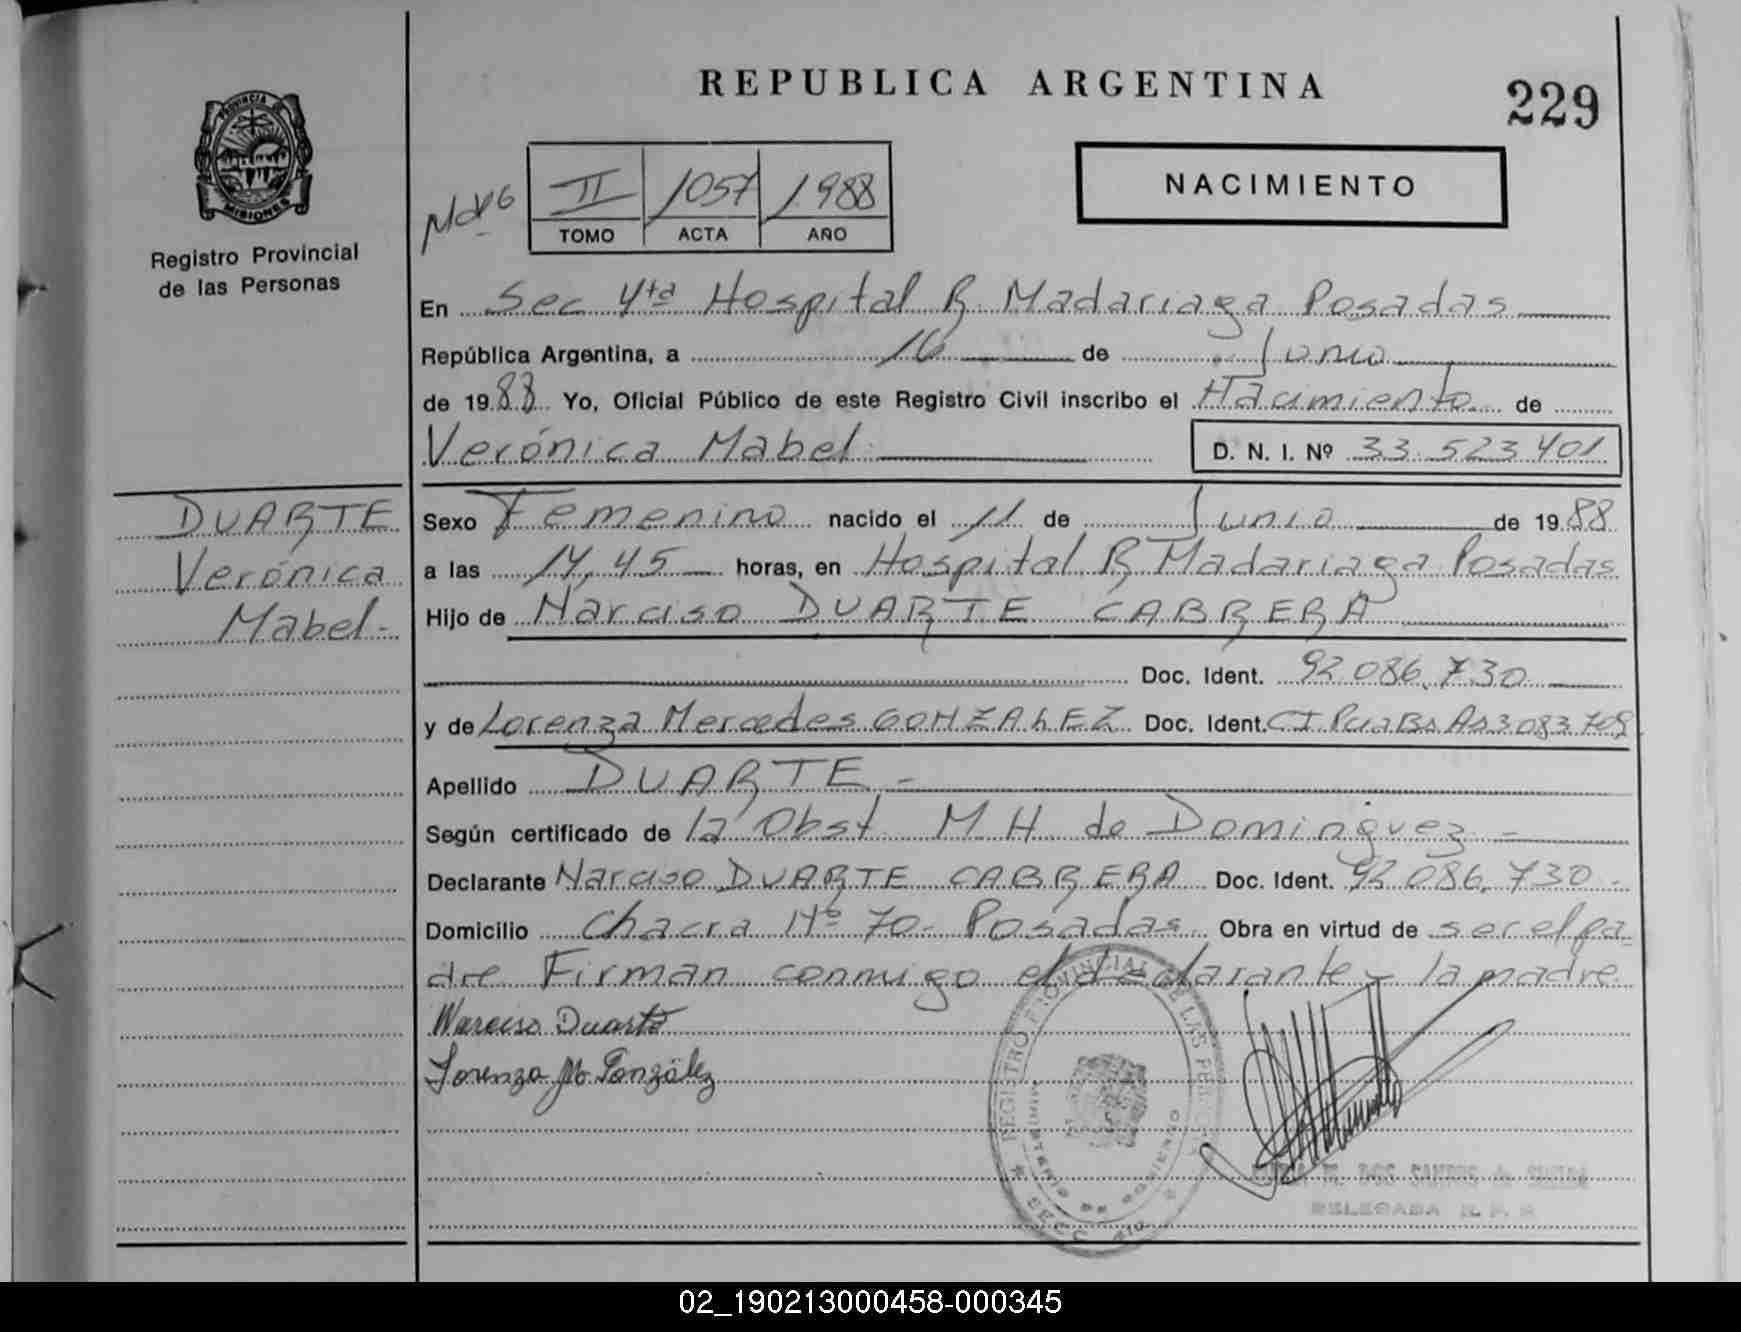 REPUBLICA ARGENTINA
229
PROVINCIA DE
MISIONES
Registro Provincial
de las Personas
II 1057 1988
TOMO ACTA AÑO
NACIMIENTO
En Sec 4ta Hospital R. Madariaga Posadas
República Argentina, a 16 de Junio
de 1988 Yo, Oficial Público de este Registro Civil inscribo el Nacimiento de
Verónica Mabel D. N. I. Nº 33.523.401
DUARTE
Verónica
Mabel-
Sexo Femenino nacido el 11 de Junio de 1988
a las 14,45 horas, en Hospital R Madariaga Posadas
Hijo de Narciso DUARTE CABRERA
Doc. Ident. 92.086.730
y de Lorenza Mercedes GONZALEZ Doc. Ident. CI PciaBsAs 3083709
Apellido DUARTE-
Según certificado de la Obst M H de Dominguez-
Declarante Narciso DUARTE CABRERA Doc. Ident. 92.086.730-
Domicilio Chacra Nº 70- Posadas Obra en virtud de ser el pa-
dre Firman conmigo el declarante y la madre
Narciso Duarte
Lorenza M. González
REGISTRO PROVINCIAL DE LAS PERSONAS
MINISTERIO DE GOBIERNO
SECC 4ta
M. DOS SANTOS de
DELEGADA R. P. P.
02_190213000458-000345